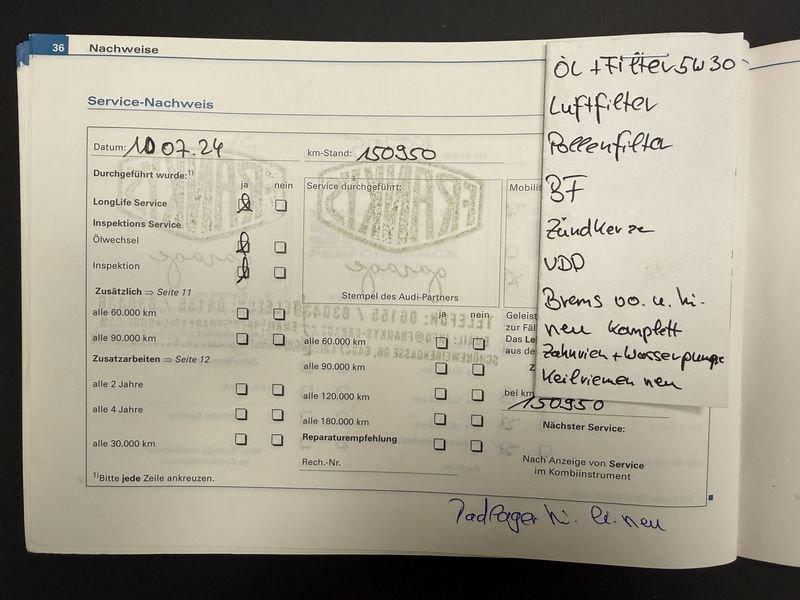 36 Nachweise
Service-Nachweis
Datum: 10 07.24
km-Stand: 150950
Durchgeführt wurde:¹⁾
ja nein
LongLife Service
Inspektions Service
Ölwechsel
Inspektion
Zusätzlich ⇒ Seite 11
alle 60.000 km
alle 90.000 km
Zusatzarbeiten ⇒ Seite 12
alle 2 Jahre
alle 4 Jahre
alle 30.000 km
¹⁾Bitte jede Zeile ankreuzen.
Service durchgeführt:
Stempel des Audi-Partners
ja nein
alle 60.000 km
alle 90.000 km
alle 120.000 km
alle 180.000 km
Reparaturempfehlung
Rech.-Nr.
Mobilit
Geleist
zur Fäl
Das Le
aus de
bei km
150950
Nächster Service:
Nach Anzeige von Service
im Kombiinstrument
ÖL + Filter 5W30
Luftfilter
Pollenfilter
BF
Zündkerze
VDD
Brems vo. u. hi-
neu komplett
Zahnriem + Wasserpumpe
Keilriemen neu
Radlager hi. li. neu